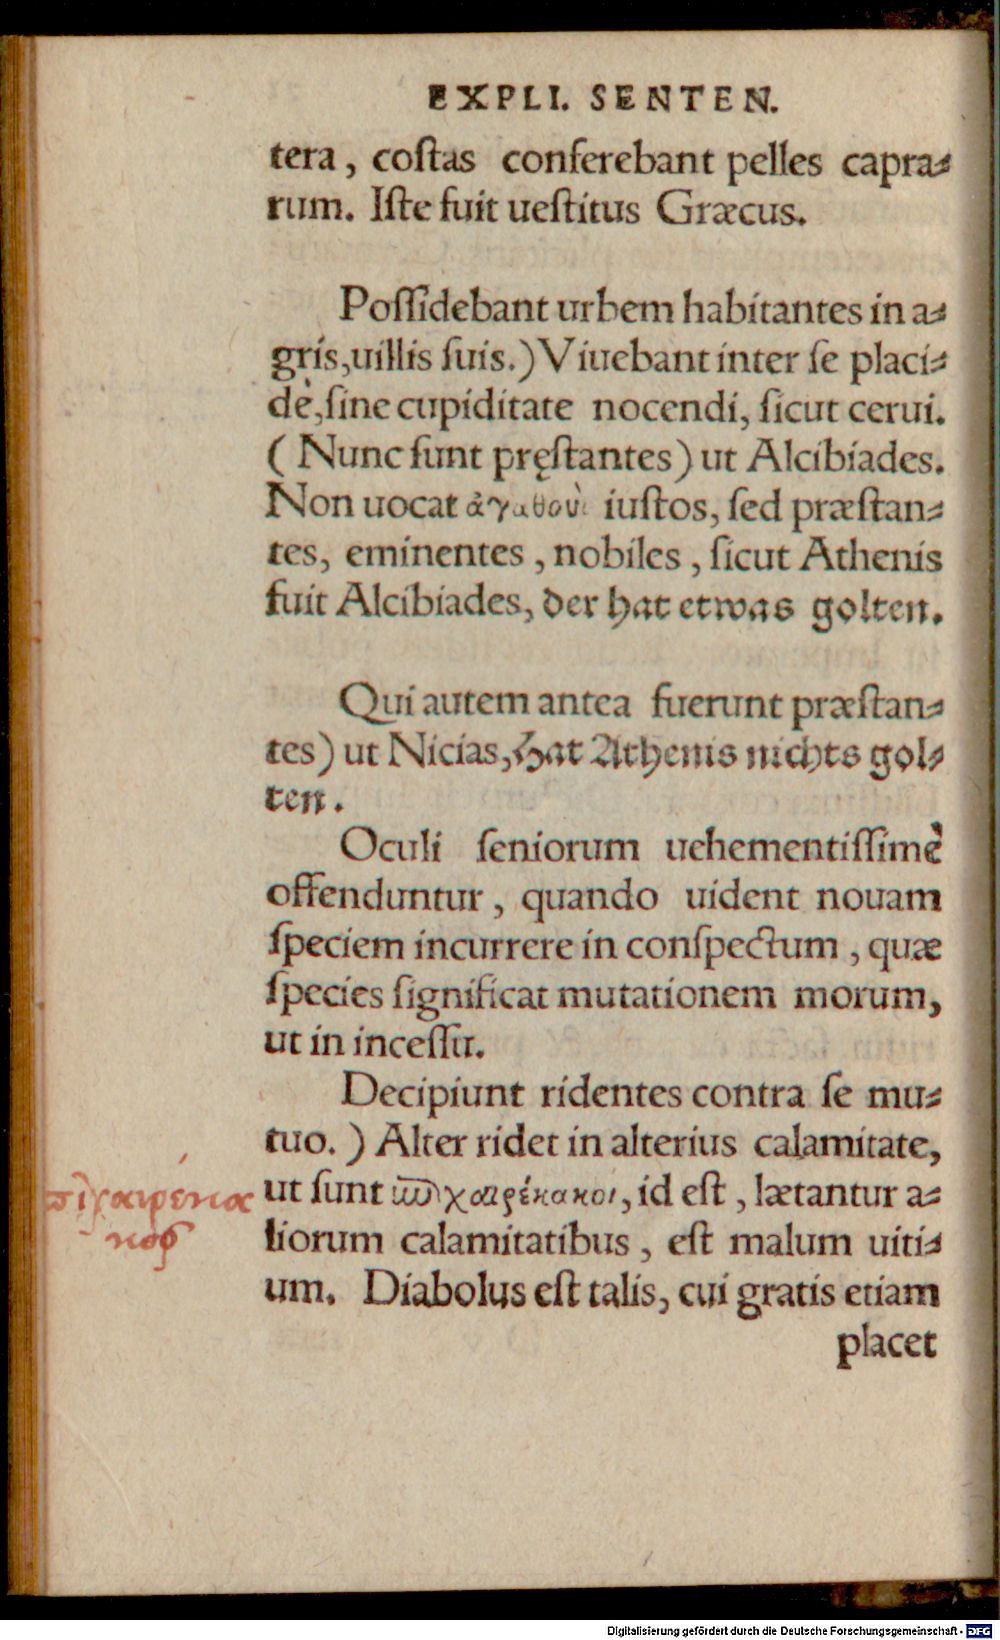 EXPLI. SENTEN.
tera, coſtas conferebant pelles capra⸗
rum. Iſte fuit ueſtitus Græcus.
Poſſidebant urbem habitantes in a⸗
gris, uillis ſuis.) Viuebant inter ſe placi⸗
dè, ſine cupiditate nocendi, ſicut cerui.
( Nunc ſunt pręſtantes) ut Alcibiades.
Non uocat ἀγαθοὺς iuſtos, ſed præſtan⸗
tes, eminentes, nobiles, ſicut Athenis
fuit Alcibiades, der hat etwas golten.
Qui autem antea fuerunt præſtan⸗
tes) ut Nicias, Hat Athenis nichts gol⸗
ten.
Oculi ſeniorum uehementiſſimè
offenduntur, quando uident nouam
ſpeciem incurrere in conſpectum, quæ
ſpecies ſignificat mutationem morum,
ut in inceſſu.
Decipiunt ridentes contra ſe mu⸗
tuo.) Alter ridet in alterius calamitate,
ut ſunt χαιρέκακοι, id eſt, lætantur a⸗
liorum calamitatibus, eſt malum uiti⸗
um. Diabolus eſt talis, cui gratis etiam
placet
χαιρέκα
κος
Digitalisierung gefördert durch die Deutsche Forschungsgemeinschaft - DFG